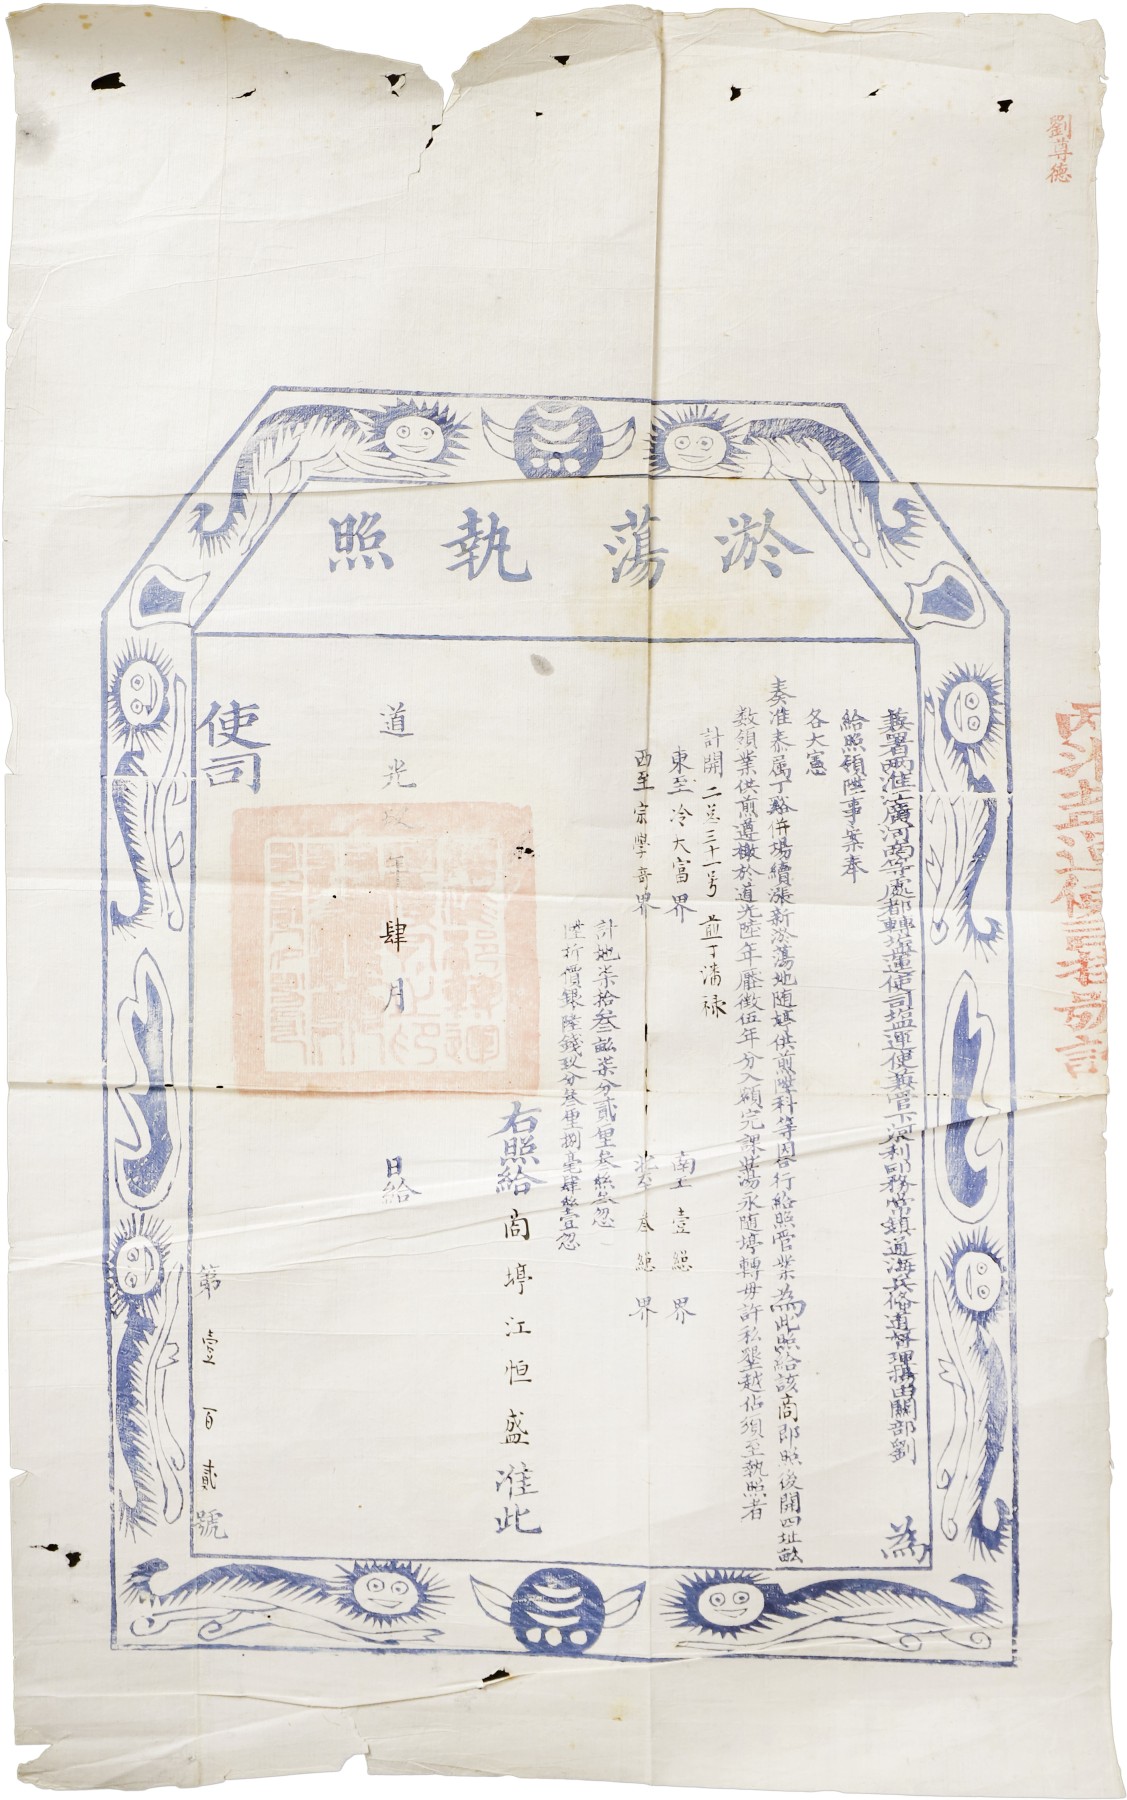 劉尊德
淤蕩執照
兼署兩淮江廣河南等處都轉塩運使司塩運使兼管下河水利事務常鎮通海兵俻道督理揚由關部劉 為
給照領陞事案奉
各大憲
奏准泰属丁谿併場續漲新淤蕩地随𡊢供煎陞科等因合行給照管業為此照給該商即照後開四址畝
数領業供煎遵檄於道光陸年歷徵伍年分入額完課其蕩永随𡊢轉毋許私墾越佔須至執照者
計開 二总三十一号 煎丁潘禄
東至冷大富界 南至壹緫界
西至宗學奇界 北至叁緫界
計地柒拾叁畝柒分貳厘叁絲叁忽
陞折價銀陸錢玖分叁厘捌毫肆絲壹忽
右照給商𡊢江恒盛准此
道光玖年肆月 日給
使司
第壹百貳號